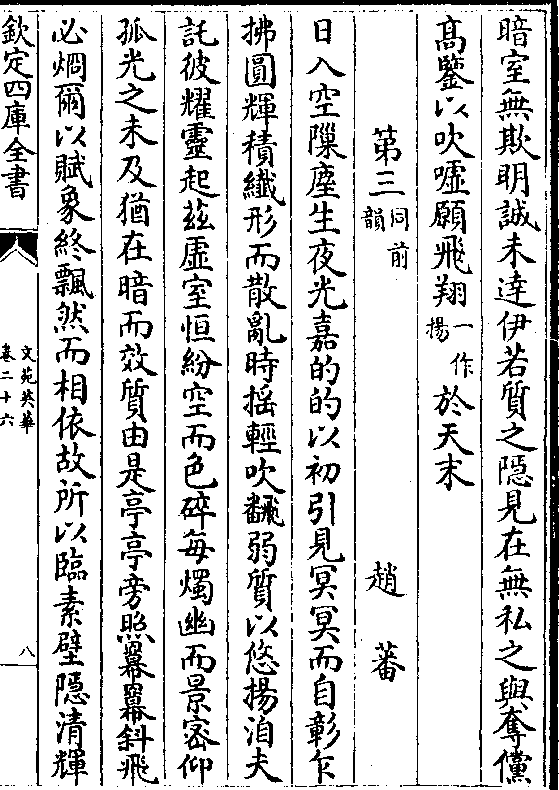 暗室無欺明誠未達伊若質之隠見在無私之與奪儻
髙鑒以吹噓願飛翔一作揚於天末
第三同前韻 趙蕃
日入空隟塵生夜光嘉的的以初引見冥冥而自彰乍
拂圓輝積纖形而散亂時揺輕吹飜弱質以悠揚洎夫
託彼耀靈起茲虚室恒紛空而色碎每燭幽而景宻仰
孤光之未及猶在暗而效質由是亭亭旁照羃羃斜飛
必烱爾以賦象終飄然而相依故所以臨素壁隠清輝
欽定四庫全書
文苑英華
卷二十六
八